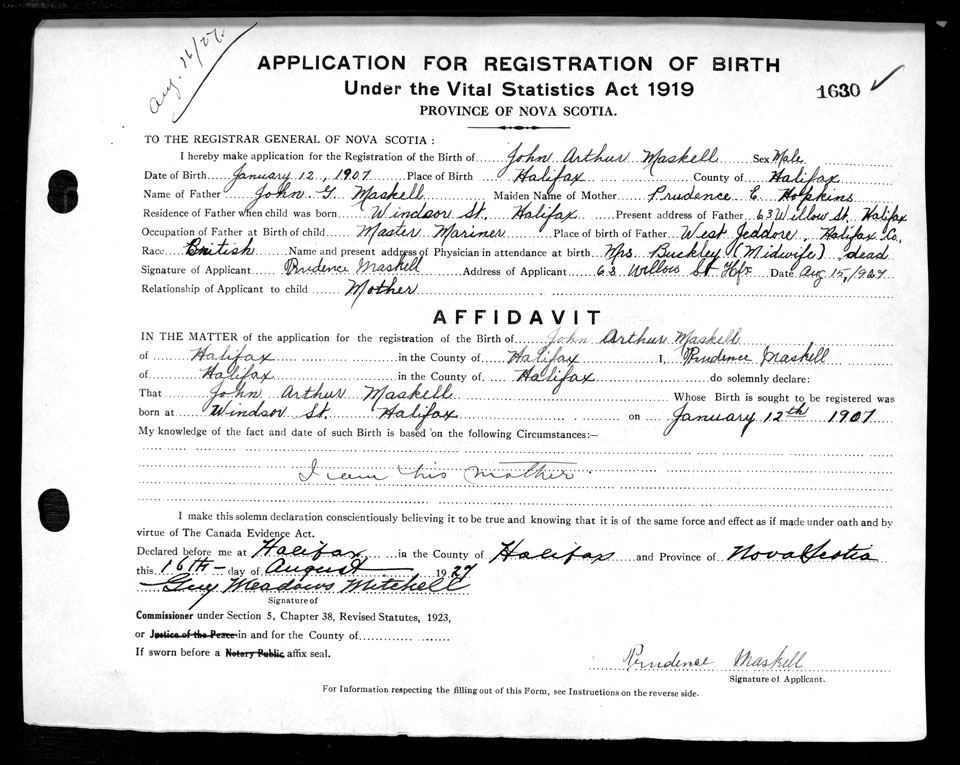 Aug. 16/27.
APPLICATION FOR REGISTRATION OF BIRTH
Under the Vital Statistics Act 1919
1630 ✓
PROVINCE OF NOVA SCOTIA.
TO THE REGISTRAR GENERAL OF NOVA SCOTIA:
I hereby make application for the Registration of the Birth of John Arthur Maskell Sex Male
Date of Birth January 12, 1907 Place of Birth Halifax County of Halifax
Name of Father John G. Maskell Maiden Name of Mother Prudence E. Hopkins
Residence of Father when child was born Windsor St. Halifax Present address of Father 63 Willow St. Halifax
Occupation of Father at Birth of child Master Mariner Place of birth of Father West Jeddore, Halifax Co.
Race British Name and present address of Physician in attendance at birth Mrs Buckley (Midwife) dead
Signature of Applicant Prudence Maskell Address of Applicant 63 Willow St Hfx Date Aug 15, 1927
Relationship of Applicant to child Mother
AFFIDAVIT
IN THE MATTER of the application for the registration of the Birth of John Arthur Maskell
of Halifax in the County of Halifax I, Prudence Maskell
of Halifax in the County of Halifax do solemnly declare:
That John Arthur Maskell Whose Birth is sought to be registered was
born at Windsor St. Halifax on January 12th 1907
My knowledge of the fact and date of such Birth is based on the following Circumstances:—
I am his mother
I make this solemn declaration conscientiously believing it to be true and knowing that it is of the same force and effect as if made under oath and by
virtue of The Canada Evidence Act.
Declared before me at Halifax, in the County of Halifax and Province of Nova Scotia
this 16th day of August 1927
Guy Meadows Mitchell
Signature of
Commissioner under Section 5, Chapter 38, Revised Statutes, 1923,
or Justice of the Peace in and for the County of
If sworn before a Notary Public affix seal.
Prudence Maskell
Signature of Applicant.
For Information respecting the filling out of this Form, see Instructions on the reverse side.